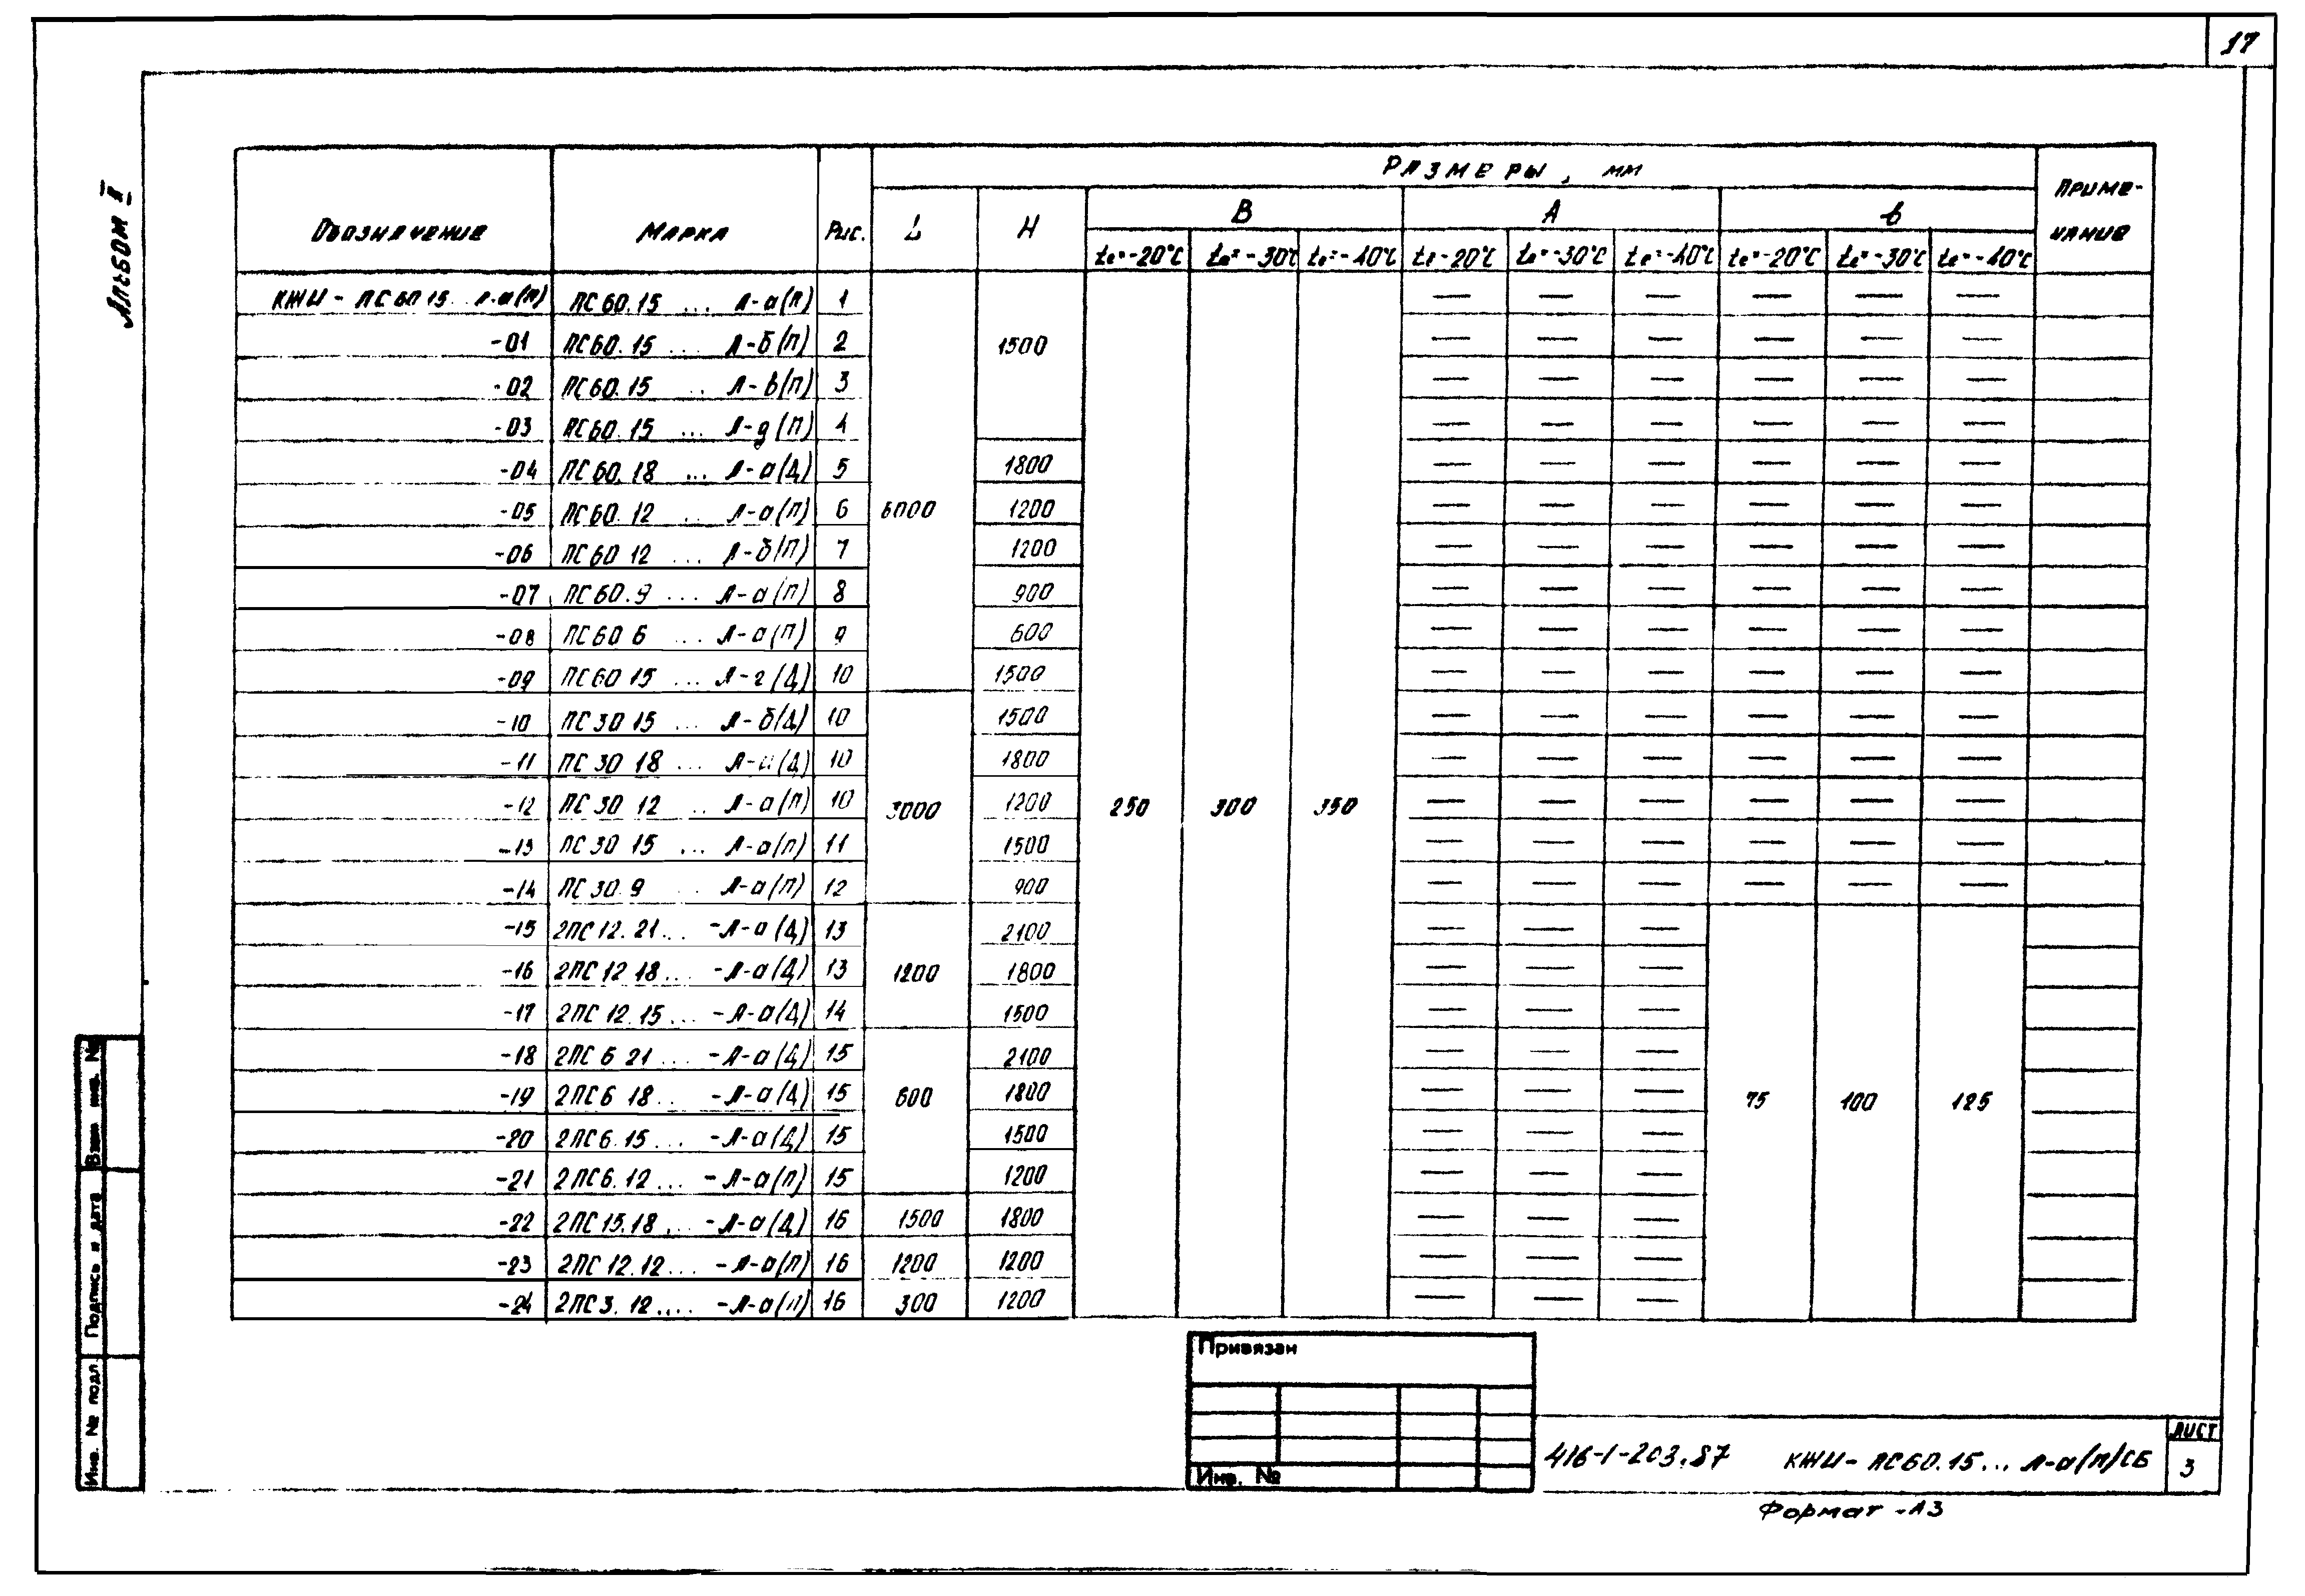 17
Альбом II
Обозначение Марка Рис. Размеры, мм Приме-
чание
L H В А в
tн=-20°С tн=-30°С tн=-40°С tн=-20°С tн=-30°С tн=-40°С tн=-20°С tн=-30°С tн=-40°С
КЖИ - ПС60.15...Л-а(П) ПС60.15 ... Л-а(П) 1 — — — — — —
-01 ПС60.15 ... Л-б(П) 2 1500 — — — — — —
-02 ПС60.15 ... Л-в(П) 3 — — — — — —
-03 ПС60.15 ... Л-д(П) 4 — — — — — —
-04 ПС60.18 ... Л-а(Д) 5 1800 — — — — — —
-05 ПС60.12 ... Л-а(П) 6 6000 1200 — — — — — —
-06 ПС60 12 ... Л-б(П) 7 1200 — — — — — —
-07 ПС60.9 ... Л-а(П) 8 900 — — — — — —
-08 ПС60 6 ... Л-а(П) 9 600 — — — — — —
-09 ПС60 15 ... Л-г(Д) 10 1500 — — — — — —
-10 ПС30 15 ... Л-б(Д) 10 1500 — — — — — —
-11 ПС30 18 ... Л-а(Д) 10 1800 — — — — — —
-12 ПС30 12 ... Л-а(П) 10 3000 1200 250 300 350 — — — — — —
-13 ПС30 15 ... Л-а(П) 11 1500 — — — — — —
-14 ПС30.9 ... Л-а(П) 12 900 — — — — — —
-15 2ПС12.21... -Л-а(Д) 13 2100 — — —
-16 2ПС12 18... -Л-а(Д) 13 1200 1800 — — —
-17 2ПС12.15... -Л-а(Д) 14 1500 — — —
-18 2ПС6 21... -Л-а(Д) 15 2100 — — —
-19 2ПС6 18... -Л-а(Д) 15 600 1800 — — — 75 100 125
-20 2ПС6.15... -Л-а(Д) 15 1500 — — —
-21 2ПС6.12... -Л-а(П) 15 1200 — — —
-22 2ПС15.18... -Л-а(Д) 16 1500 1800 — — —
-23 2ПС12.12... -Л-а(П) 16 1200 1200 — — —
-24 2ПС3.12.... -Л-а(П) 16 300 1200 — — —
Взам инв. №
Подпись и дата
Инв. № подл.
Привязан
Инв. №
416-1-203.87 КЖИ- ПС60.15... Л-а(П)СБ
Лист
3
Формат -А3